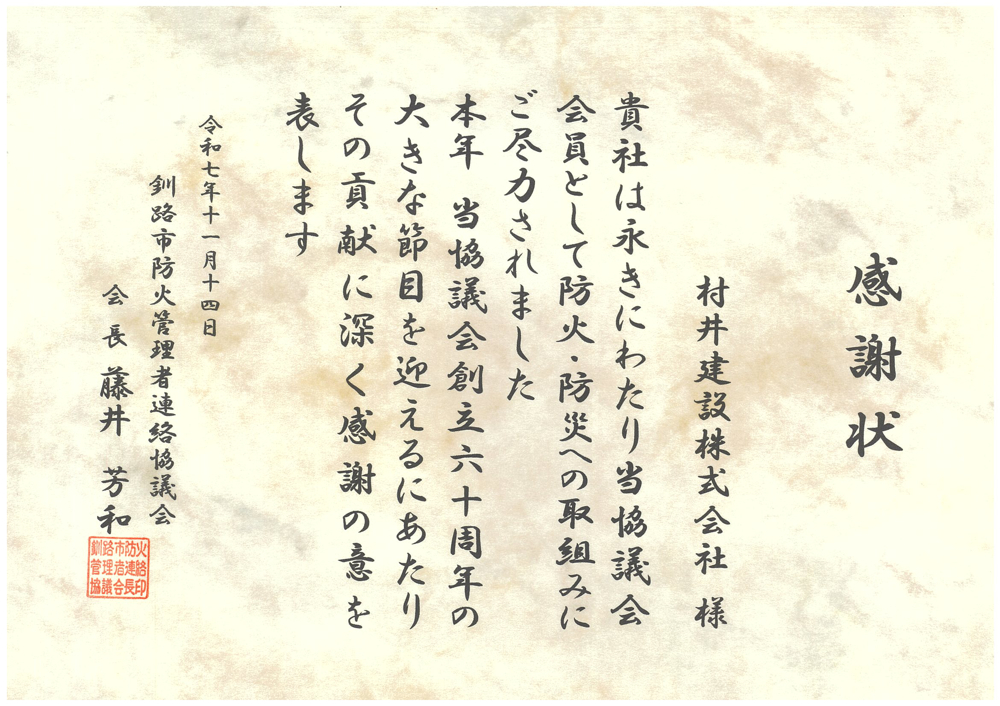 感謝状
村井建設株式会社 様
貴社は永きにわたり当協議会
会員として防火・防災への取組みに
ご尽力されました
本年 当協議会創立六十周年の
大きな節目を迎えるにあたり
その貢献に深く感謝の意を
表します
令和七年十一月十四日
釧路市防火管理者連絡協議会
会長 藤井 芳和
釧路市防火
管理者連絡
協議会長印